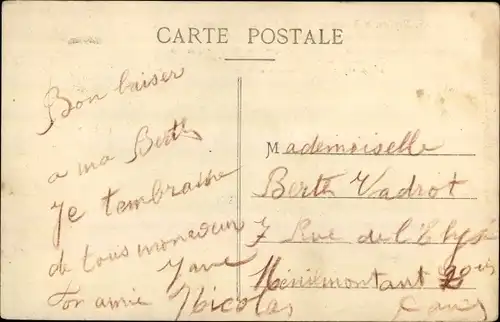 CARTE POSTALE
Bon baiser
a ma Berth
Je tembrasse
de tous moncoeur
ton amie Nicolas
Mademoiselle
Berth Vadrot
7 Rue de l'Elys
Ménilmontant 20
Paris